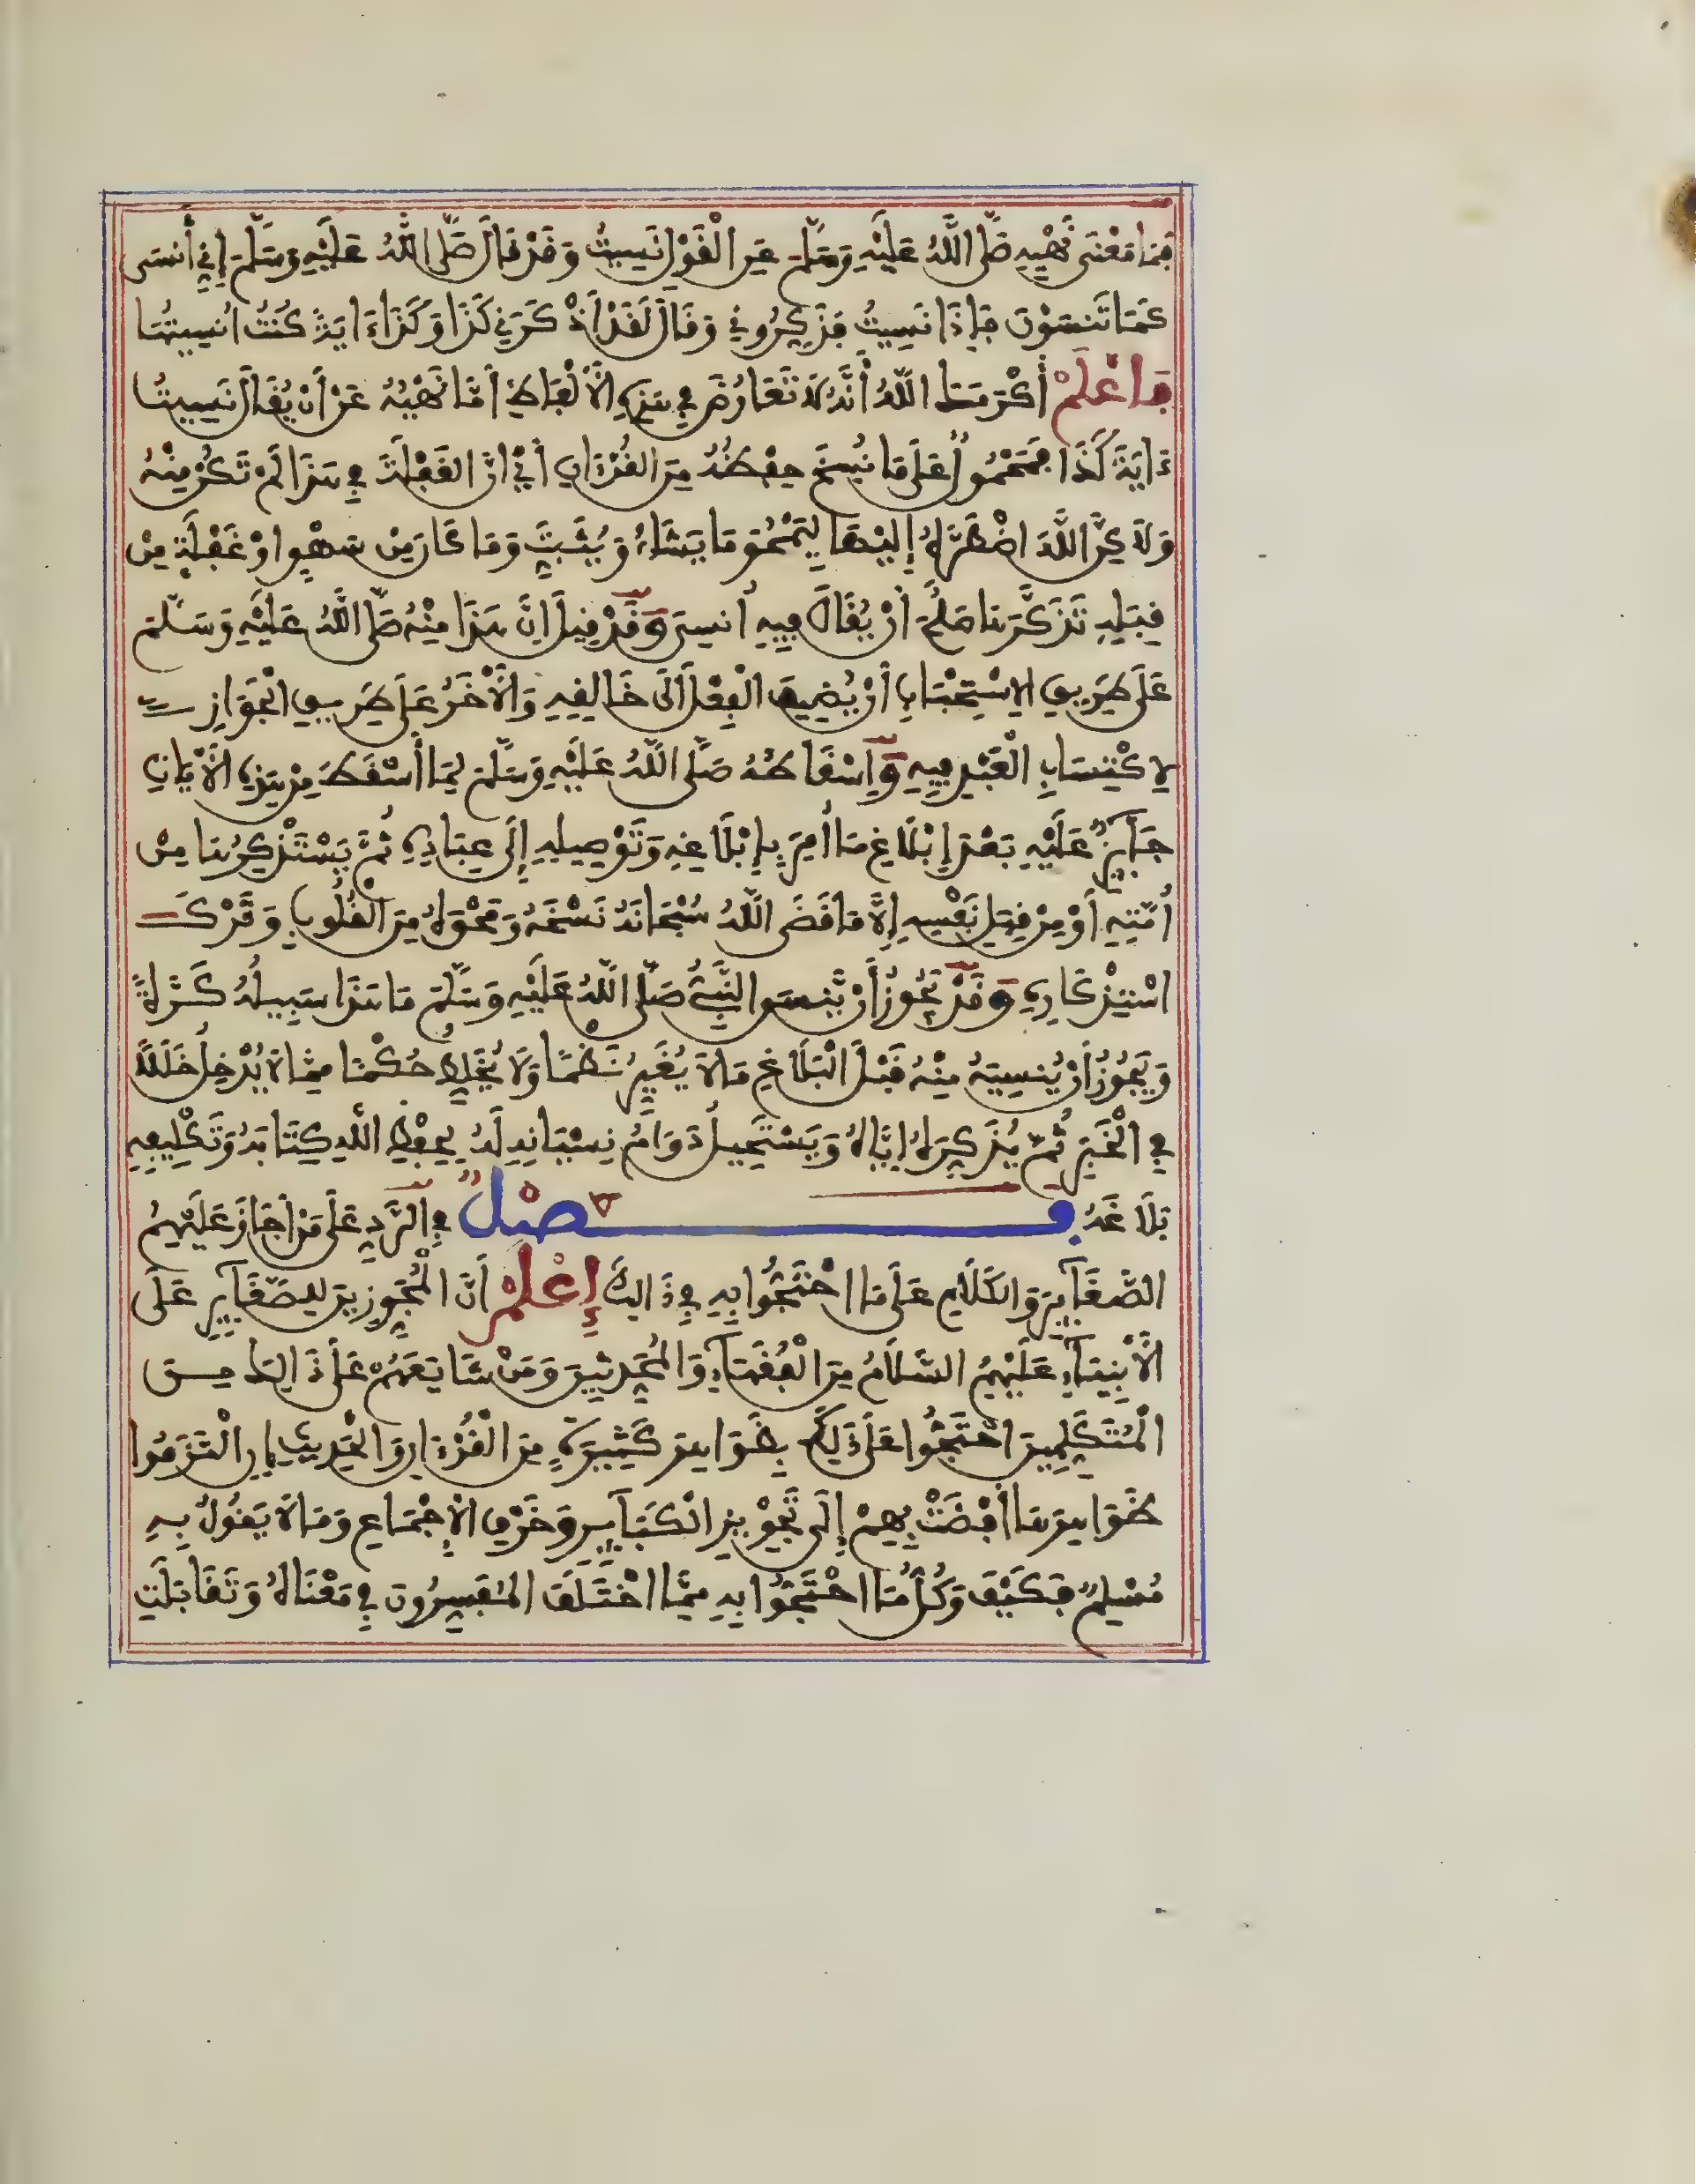 فَمَا مَعْنَى نَهْيِهِ صَلَّى اللَّهُ عَلَيْهِ وَسَلَّمَ عَنِ الْقَوْلِ نَسِيتُ وَقَدْ قَالَ صَلَّى اللَّهُ عَلَيْهِ وَسَلَّمَ إِنِّي أَنسَى
كَمَا تَنسَوْنَ فَإِذَا نَسِيتُ فَذَكِّرُونِي وَقَالَ لَقَدْ أَذْكَرَنِي كَذَا وَكَذَا ءَايَةً كُنتُ أُنسِيتُهَا
فَاعْلَمْ أَكْرَمَكَ اللَّهُ أَنَّهُ لَا تَعَارُضَ فِي هَذِهِ الْأَلْفَاظِ أَمَّا نَهْيُهُ عَنْ أَنْ يُقَالَ نَسِيتُ
ءَايَةَ كَذَا فَمَحْمُولٌ عَلَى مَا نُسِخَ حِفْظُهُ مِنَ الْقُرْءَانِ أَيْ انَّ الْغَفْلَةَ فِي هَذَا لَمْ تَكُنْ مِنْهُ
وَلَكِنَّ اللَّهَ اضْطَرَّهُ إِلَيْهَا لِيَمْحُوَ مَا يَشَاءُ وَيُثْبِتَ وَمَا كَانَ مِنْ سَهْوٍ اوْ غَفْلَةٍ مِنْ
قِبَلِهِ تَذَكَّرَهَا صَلُحَ أَنْ يُقَالَ فِيهِ أُنسِيَ وَقَدْ قِيلَ إِنَّ هَذَا مِنْهُ صَلَّى اللَّهُ عَلَيْهِ وَسَلَّمَ
عَلَى طَرِيقِ الِاسْتِحْبَابِ أَنْ يُضِيفَ الْفِعْلَ الَى خَالِقِهِ وَالْأَخَرُ عَلَى طَرِيقِ الْجَوَازِ
لِاكْتِسَابِ الْعَبْدِ فِيهِ وَإِسْقَاطُهُ صَلَّى اللَّهُ عَلَيْهِ وَسَلَّمَ لِمَا أَسْقَطَ مِنْ هَذِهِ الْأَيَاتِ
جَآئِزٌ عَلَيْهِ بَعْدَ إِبْلَاغِ مَا أُمِرَ بِإِبْلَاغِهِ وَتَوْصِيلِهِ إِلَى عِبَادِهِ ثُمَّ يَسْتَذْكِرُهَا مِنْ
أُمَّتِهِ أَوْ مِنْ قِبَلِ نَفْسِهِ إِلَّا مَا قَضَى اللَّهُ سُبْحَانَهُ نَسْخَهُ وَمَحْوَهُ مِنَ الْقُلُوبِ وَتَرْكَ
اسْتِذْكَارِهِ وَقَدْ يَجُوزُ أَنْ يَّنسَى النَّبِيُّ صَلَّى اللَّهُ عَلَيْهِ وَسَلَّمَ مَا هَذَا سَبِيلُهُ كَرَّةً
وَيَجُوزُ أَنْ يُنسِيَهُ مِنْهُ قَبْلَ الْبَلَاغِ مَا لَا يُغَيِّرُ نَظْمًا وَلَا يُخَلِّطُ حُكْمًا مِمَّا لَا يُدْخِلُ خَلَلًا
فِي الْخَبَرِ ثُمَّ يُذَكِّرَهُ إِيَّاهُ وَيَسْتَحِيلُ دَوَامُ نِسْيَانِهِ لَهُ لِحِفْظِ اللَّهِ كِتَابَهُ وَتَكْلِيفِهِ
بَلَاغَهُ فَصْلٌ فِي الرَّدِّ عَلَى مَنْ أَجَازَ عَلَيْهِمُ
الصَّغَآئِرَ وَالْكَلَامِ عَلَى مَا احْتَجُّوا بِهِ فِي ذَالِكَ إِعْلَمْ أَنَّ الْمُجَوِّزِينَ لِلصَّغَآئِرِ عَلَى
الْأَنْبِيَآءِ عَلَيْهِمُ السَّلَامُ مِنَ الْفُقَهَآءِ وَالْمُحَدِّثِينَ وَمَنْ شَايَعَهُمْ عَلَى ذَالِكَ مِنَ
الْمُتَكَلِّمِينَ احْتَجُّوا عَلَى ذَلِكَ بِظَوَاهِرَ كَثِيرَةٍ مِنَ الْقُرْءَانِ وَالْحَدِيثِ إِنِ الْتَزَمُوا
ظَوَاهِرَهَا أَفْضَتْ بِهِمْ إِلَى تَجْوِيزِ الْكَبَآئِرِ وَخَرْقِ الْإِجْمَاعِ وَمَا لَا يَقُولُ بِهِ
مُسْلِمٌ فَكَيْفَ وَكُلُّ مَا احْتَجُّوا بِهِ مِمَّا اخْتَلَفَ الْمُفَسِّرُونَ فِي مَعْنَاهُ وَتَقَابَلَتِ